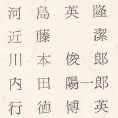 河島英隆
近藤潔
川本俊郎
内田陽一郎
行徳博英